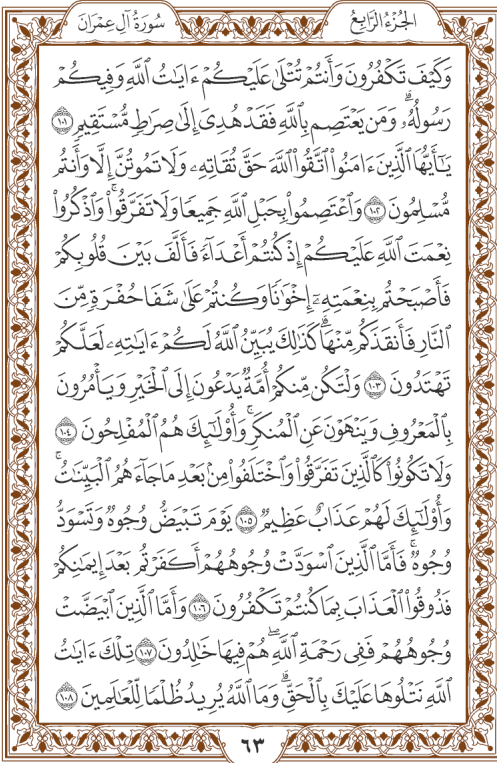 الجُزْءُ الرَّابِعُ
سُورَةُ آلِ عِمْرَانَ
وَكَيْفَ تَكْفُرُونَ وَأَنتُمْ تُتْلَىٰ عَلَيْكُمْ ءَايَٰتُ ٱللَّهِ وَفِيكُمْ
رَسُولُهُۥ ۗ وَمَن يَعْتَصِم بِٱللَّهِ فَقَدْ هُدِىَ إِلَىٰ صِرَٰطٍ مُّسْتَقِيمٍ ١٠١
يَٰٓأَيُّهَا ٱلَّذِينَ ءَامَنُوا۟ ٱتَّقُوا۟ ٱللَّهَ حَقَّ تُقَاتِهِۦ وَلَا تَمُوتُنَّ إِلَّا وَأَنتُم
مُّسْلِمُونَ ١٠٢ وَٱعْتَصِمُوا۟ بِحَبْلِ ٱللَّهِ جَمِيعًا وَلَا تَفَرَّقُوا۟ ۚ وَٱذْكُرُوا۟
نِعْمَتَ ٱللَّهِ عَلَيْكُمْ إِذْ كُنتُمْ أَعْدَآءً فَأَلَّفَ بَيْنَ قُلُوبِكُمْ
فَأَصْبَحْتُم بِنِعْمَتِهِۦٓ إِخْوَٰنًا وَكُنتُمْ عَلَىٰ شَفَا حُفْرَةٍ مِّنَ
ٱلنَّارِ فَأَنقَذَكُم مِّنْهَا ۗ كَذَٰلِكَ يُبَيِّنُ ٱللَّهُ لَكُمْ ءَايَٰتِهِۦ لَعَلَّكُمْ
تَهْتَدُونَ ١٠٣ وَلْتَكُن مِّنكُمْ أُمَّةٌ يَدْعُونَ إِلَى ٱلْخَيْرِ وَيَأْمُرُونَ
بِٱلْمَعْرُوفِ وَيَنْهَوْنَ عَنِ ٱلْمُنكَرِ ۚ وَأُو۟لَٰٓئِكَ هُمُ ٱلْمُفْلِحُونَ ١٠٤
وَلَا تَكُونُوا۟ كَٱلَّذِينَ تَفَرَّقُوا۟ وَٱخْتَلَفُوا۟ مِنۢ بَعْدِ مَا جَآءَهُمُ ٱلْبَيِّنَٰتُ ۚ
وَأُو۟لَٰٓئِكَ لَهُمْ عَذَابٌ عَظِيمٌ ١٠٥ يَوْمَ تَبْيَضُّ وُجُوهٌ وَتَسْوَدُّ
وُجُوهٌ ۚ فَأَمَّا ٱلَّذِينَ ٱسْوَدَّتْ وُجُوهُهُمْ أَكَفَرْتُم بَعْدَ إِيمَٰنِكُمْ
فَذُوقُوا۟ ٱلْعَذَابَ بِمَا كُنتُمْ تَكْفُرُونَ ١٠٦ وَأَمَّا ٱلَّذِينَ ٱبْيَضَّتْ
وُجُوهُهُمْ فَفِى رَحْمَةِ ٱللَّهِ ۖ هُمْ فِيهَا خَٰلِدُونَ ١٠٧ تِلْكَ ءَايَٰتُ
ٱللَّهِ نَتْلُوهَا عَلَيْكَ بِٱلْحَقِّ ۗ وَمَا ٱللَّهُ يُرِيدُ ظُلْمًا لِّلْعَٰلَمِينَ ١٠٨
٦٣